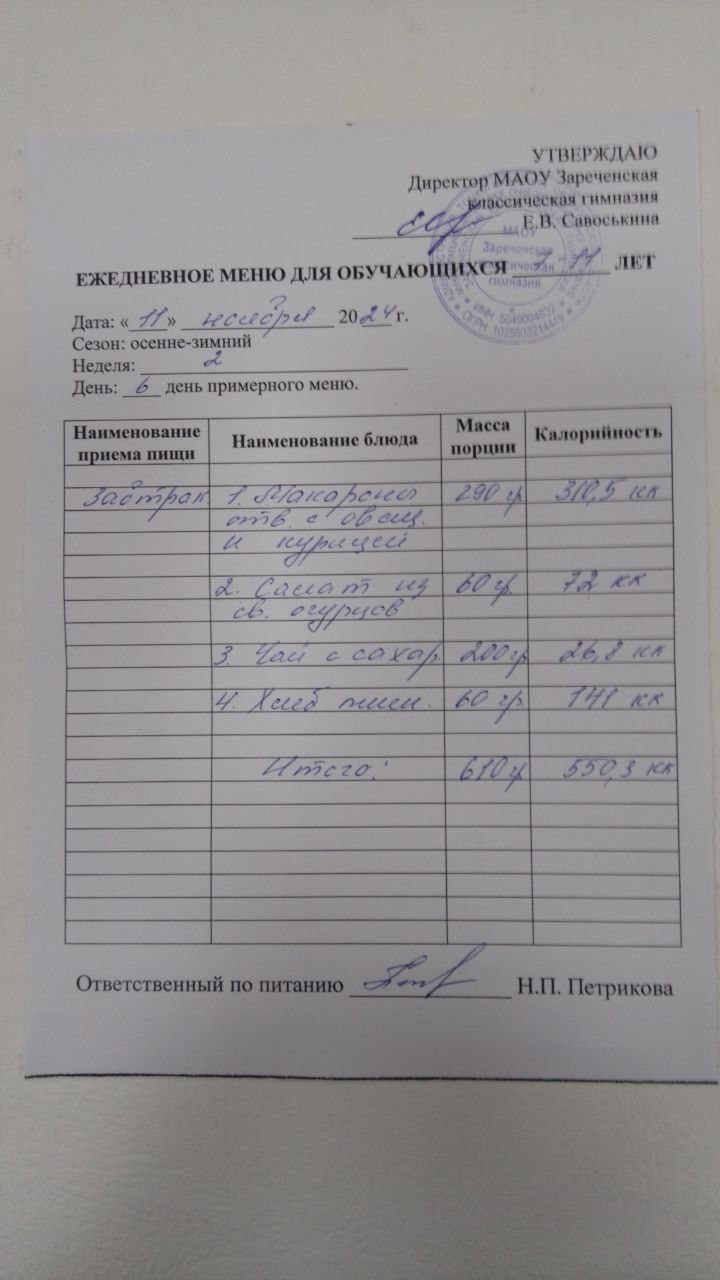 УТВЕРЖДАЮ
Директор МАОУ Зареченская
классическая гимназия
Е.В. Савоськина
МАОУ
Зареченская
классическая
гимназия
ИНН 5649004832
ОГРН 1025603214449
ЕЖЕДНЕВНОЕ МЕНЮ ДЛЯ ОБУЧАЮЩИХСЯ 7-11 ЛЕТ
Дата: «11» ноября 2024 г.
Сезон: осенне-зимний
Неделя: 2
День: 6 день примерного меню.
Наименование приема пищи Наименование блюда Масса порции Калорийность
Завтрак 1. Макароны 290 гр 310,5 кк
отв. с овощ.
и курицей
2. Салат из 60 гр. 72 кк
св. огурцов
3. Чай с сахар. 200 гр 26,8 кк
4. Хлеб пшен. 60 гр. 141 кк
Итого: 610 гр 550,3 кк
Ответственный по питанию Н.П. Петрикова